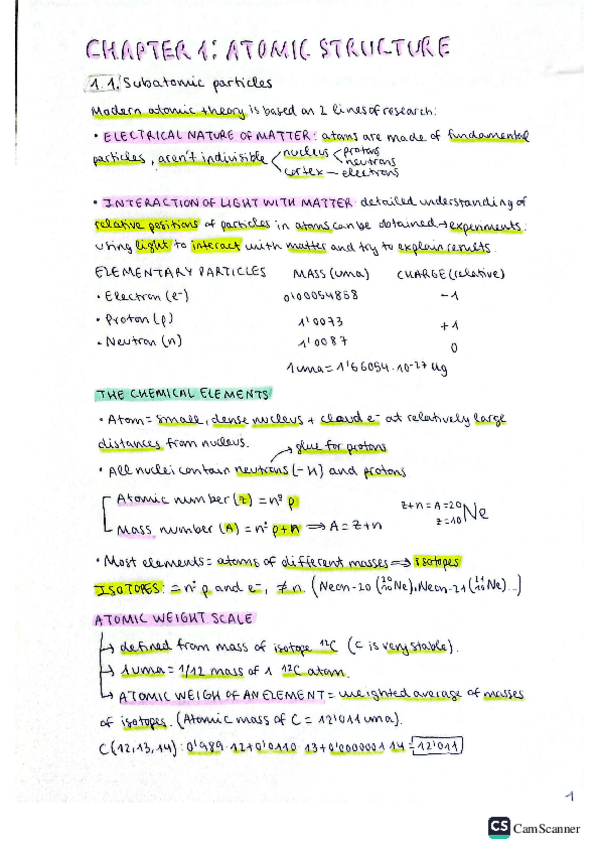 CHAPTER 1: ATOMIC STRUCTURE
1.1. Subatomic particles
Modern atomic theory is based on 2 lines of research:
• ELECTRICAL NATURE OF MATTER: atoms are made of fundamental
particles, aren't indivisible < nucleus < protons
neutrons
cortex — electrons
• INTERACTION OF LIGHT WITH MATTER: detailed understanding of
relative positions of particles in atoms can be obtained → experiments:
using light to interact with matter and try to explain results.
ELEMENTARY PARTICLES MASS (uma) CHARGE (relative)
• Electron (e⁻) 0'00054858 -1
• Proton (p) 1'0073 +1
• Neutron (n) 1'0087 0
1 uma = 1'66054·10⁻²⁷ Kg
THE CHEMICAL ELEMENTS
• Atom = small, dense nucleus + cloud e⁻ at relatively large
distances from nucleus.
→ glue for protons
• All nuclei contain neutrons (-H) and protons
Atomic number (Z) = nº p
Mass number (A) = nº p+n ⇒ A = Z+n
Z+n = A = 20
Z = 10 Ne
• Most elements = atoms of different masses ⇒ isotopes
ISOTOPES: = nº p and e⁻, ≠ n. (Neon-20 (²⁰₁₀Ne), Neon-21 (²¹₁₀Ne)...)
ATOMIC WEIGHT SCALE
→ defined from mass of isotope ¹²C (C is very stable).
→ 1 uma = 1/12 mass of 1 ¹²C atom.
→ ATOMIC WEIGH OF AN ELEMENT = weighted average of masses
of isotopes. (Atomic mass of C = 12'011 uma).
C (12, 13, 14): 0'989·12+0'0110·13+0'000001·14 = 12'011
1
CS CamScanner